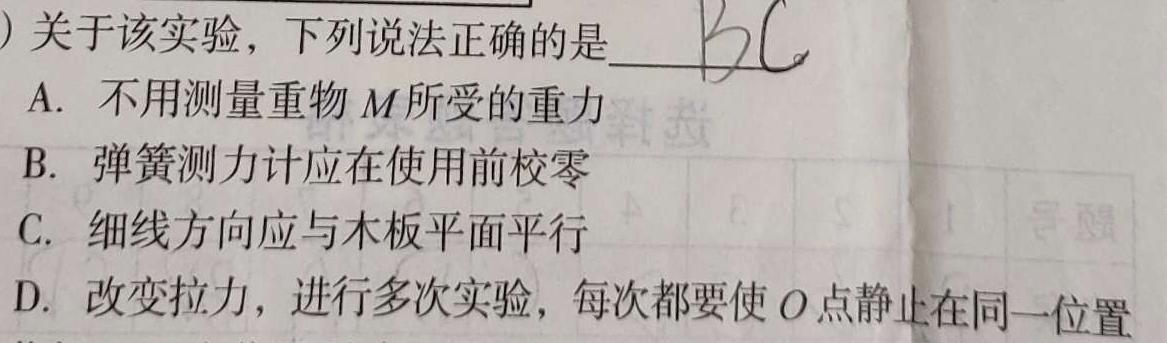 ）关于该实验，下列说法正确的是 BC
A. 不用测量重物 M 所受的重力
B. 弹簧测力计应在使用前校零
C. 细线方向应与木板平面平行
D. 改变拉力，进行多次实验，每次都要使 O 点静止在同一位置